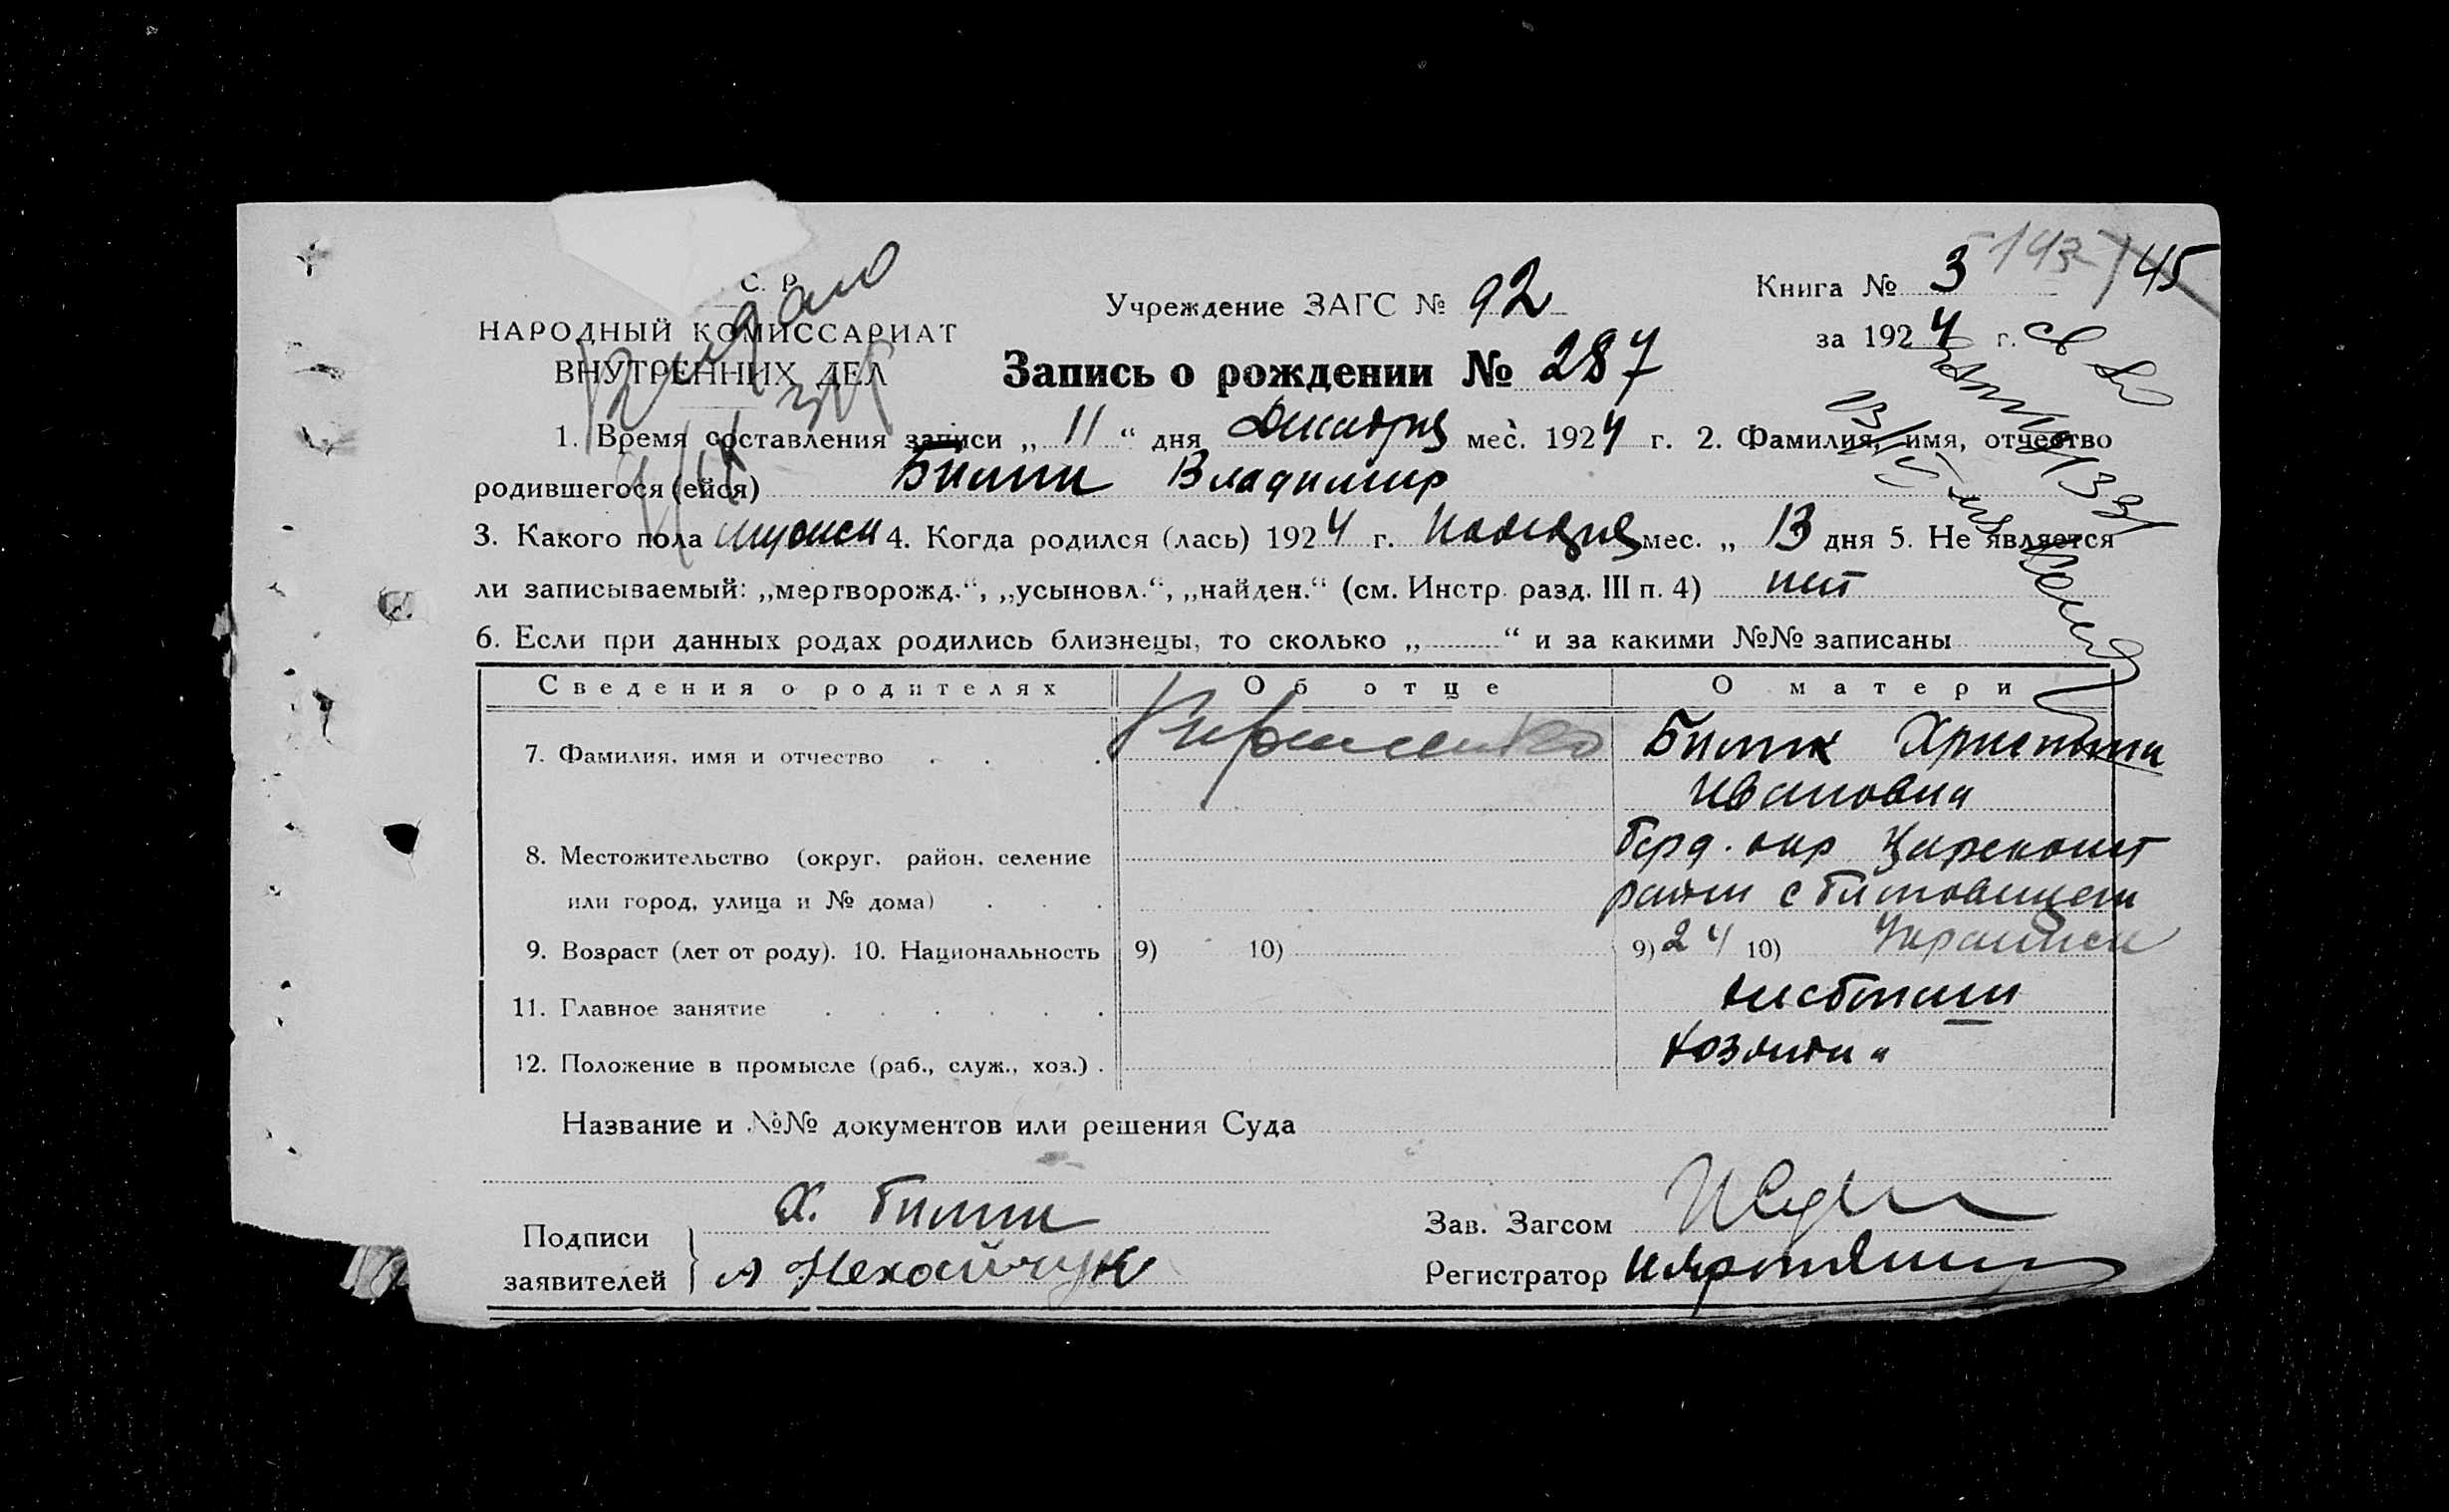 С. Р.
НАРОДНЫЙ КОМИССАРИАТ
ВНУТРЕННИХ ДЕЛ
Учреждение ЗАГС № 92
Книга № 3
143 145
за 1924 г.
Запись о рождении № 287
1. Время составления записи „ 11 “ дня Декабря мес. 1924 г. 2. Фамилия, имя, отчество
родившегося (ейся) Билык Владимир
3. Какого пола мужск 4. Когда родился (лась) 1924 г. Ноября мес. „ 13 дня 5. Не является
ли записываемый: „мертворожд.“, „усыновл.“, „найден.“ (см. Инстр. разд. III п. 4) нет
6. Если при данных родах родились близнецы, то сколько „ “ и за какими №№ записаны
Сведения о родителях Об отце О матери
7. Фамилия, имя и отчество . . . Билык Христина
Ивановна
8. Местожительство (округ, район, селение Берд. окр
или город, улица и № дома) . . . район с
9. Возраст (лет от роду). 10. Национальность 9) 10) 9) 24 10) Украинск
11. Главное занятие . . . . . .
12. Положение в промысле (раб., служ., хоз.) . хозяйка
Название и №№ документов или решения Суда
Подписи
заявителей
Х. Билык
А Нехайчук
Зав. Загсом
Регистратор